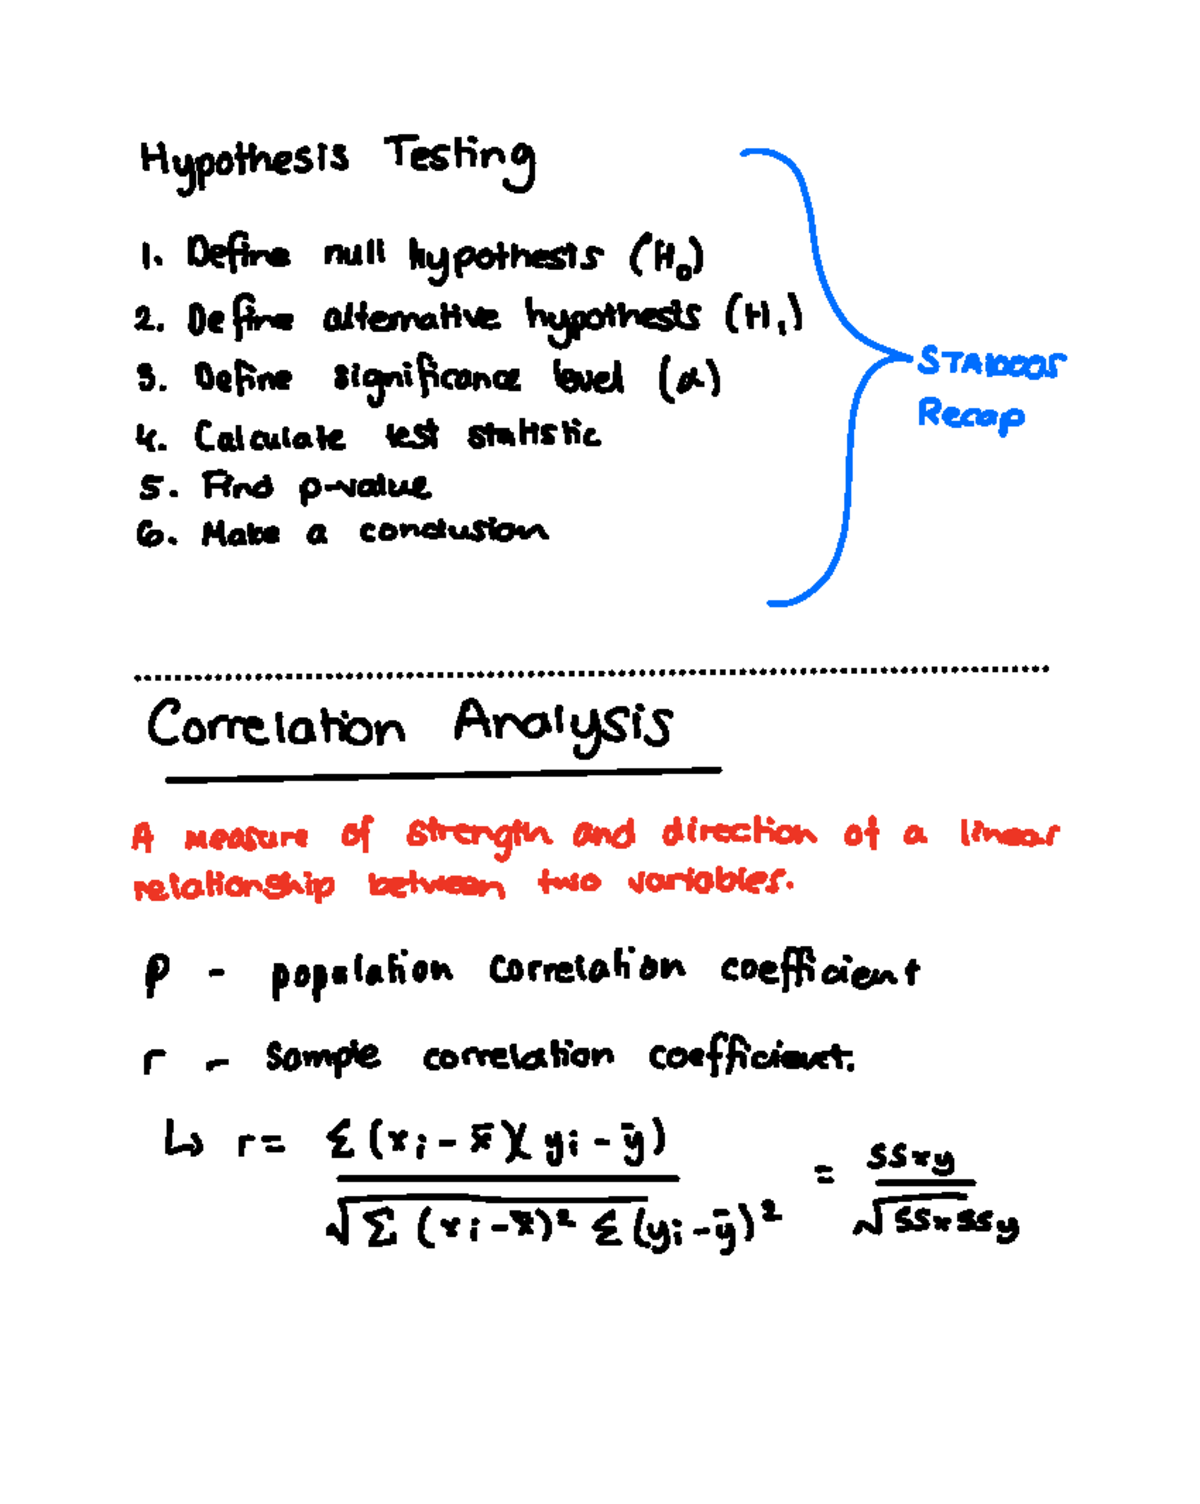 Hypothesis Testing
1. Define null hypothesis (H₀)
2. Define alternative hypothesis (H₁)
3. Define significance level (α)
4. Calculate test statistic
5. Find p-value
6. Make a conclusion
STA1000S
Recap
Correlation Analysis
A measure of strength and direction of a linear
relationship between two variables.
ρ - population correlation coefficient
r - Sample correlation coefficient.
↳ r = Σ(xi - x̄)(yi - ȳ) / √Σ(xi - x̄)² Σ(yi - ȳ)² = SSxy / √SSx SSy